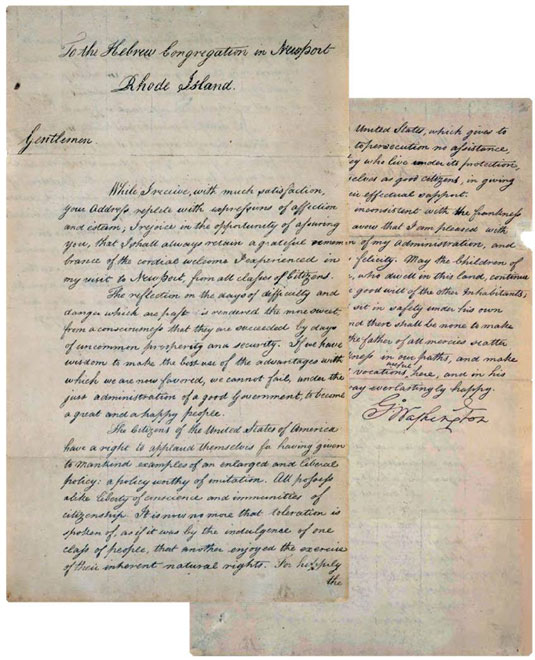 To the Hebrew Congregation in Newport
Rhode Island.
Gentlemen.
While I receive, with much satisfaction,
your Address replete with expressions of affection
and esteem; I rejoice in the opportunity of assuring
you, that I shall always retain a grateful remem
brance of the cordial welcome I experienced in
my visit to Newport, from all classes of Citizens.
The reflection on the days of difficulty and
danger which are past is rendered the more sweet,
from a consciousness that they are succeeded by days
of uncommon prosperity and security. If we have
wisdom to make the best use of the advantages with
which we are now favored, we cannot fail, under the
just administration of a good Government, to become
a great and a happy people.
The Citizens of the United States of America
have a right to applaud themselves for having given
to mankind examples of an enlarged and liberal
policy: a policy worthy of imitation. All possess
alike liberty of conscience and immunities of
citizenship. It is now no more that toleration is
spoken of, as if it was by the indulgence of one
class of people, that another enjoyed the exercise
of their inherent natural rights. For happily
the
United States, which gives to
to persecution no assistance,
who live under its protection,
as good citizens, in giving
effectual support.
inconsistent with the frankness
avow that I am pleased with
of my Administration, and
felicity. May the Children of
, who dwell in this land, continue
good will of the other Inhabitants;
sit in safety under his own
and there shall be none to make
the father of all mercies scatter
in our paths, and make
useful
vocations here, and in his
way everlastingly happy.
G. Washington